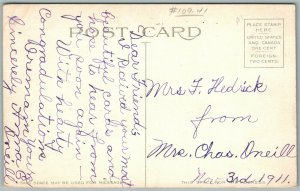 #109.41
POST CARD
PLACE STAMP
HERE
UNITED STATES
AND CANADA
ONE CENT
FOREIGN
TWO CENTS
Dear Friends
I Recived your most
beautiful cards and
hope to hear from
you soon again
With hearty
Congradulations
I remain yours
Sincerely
Mrs F. Hedrick
from
Mrs. Chas. Oneill
3rd 1911.
THIS SPACE MAY BE USED FOR MESSAGE